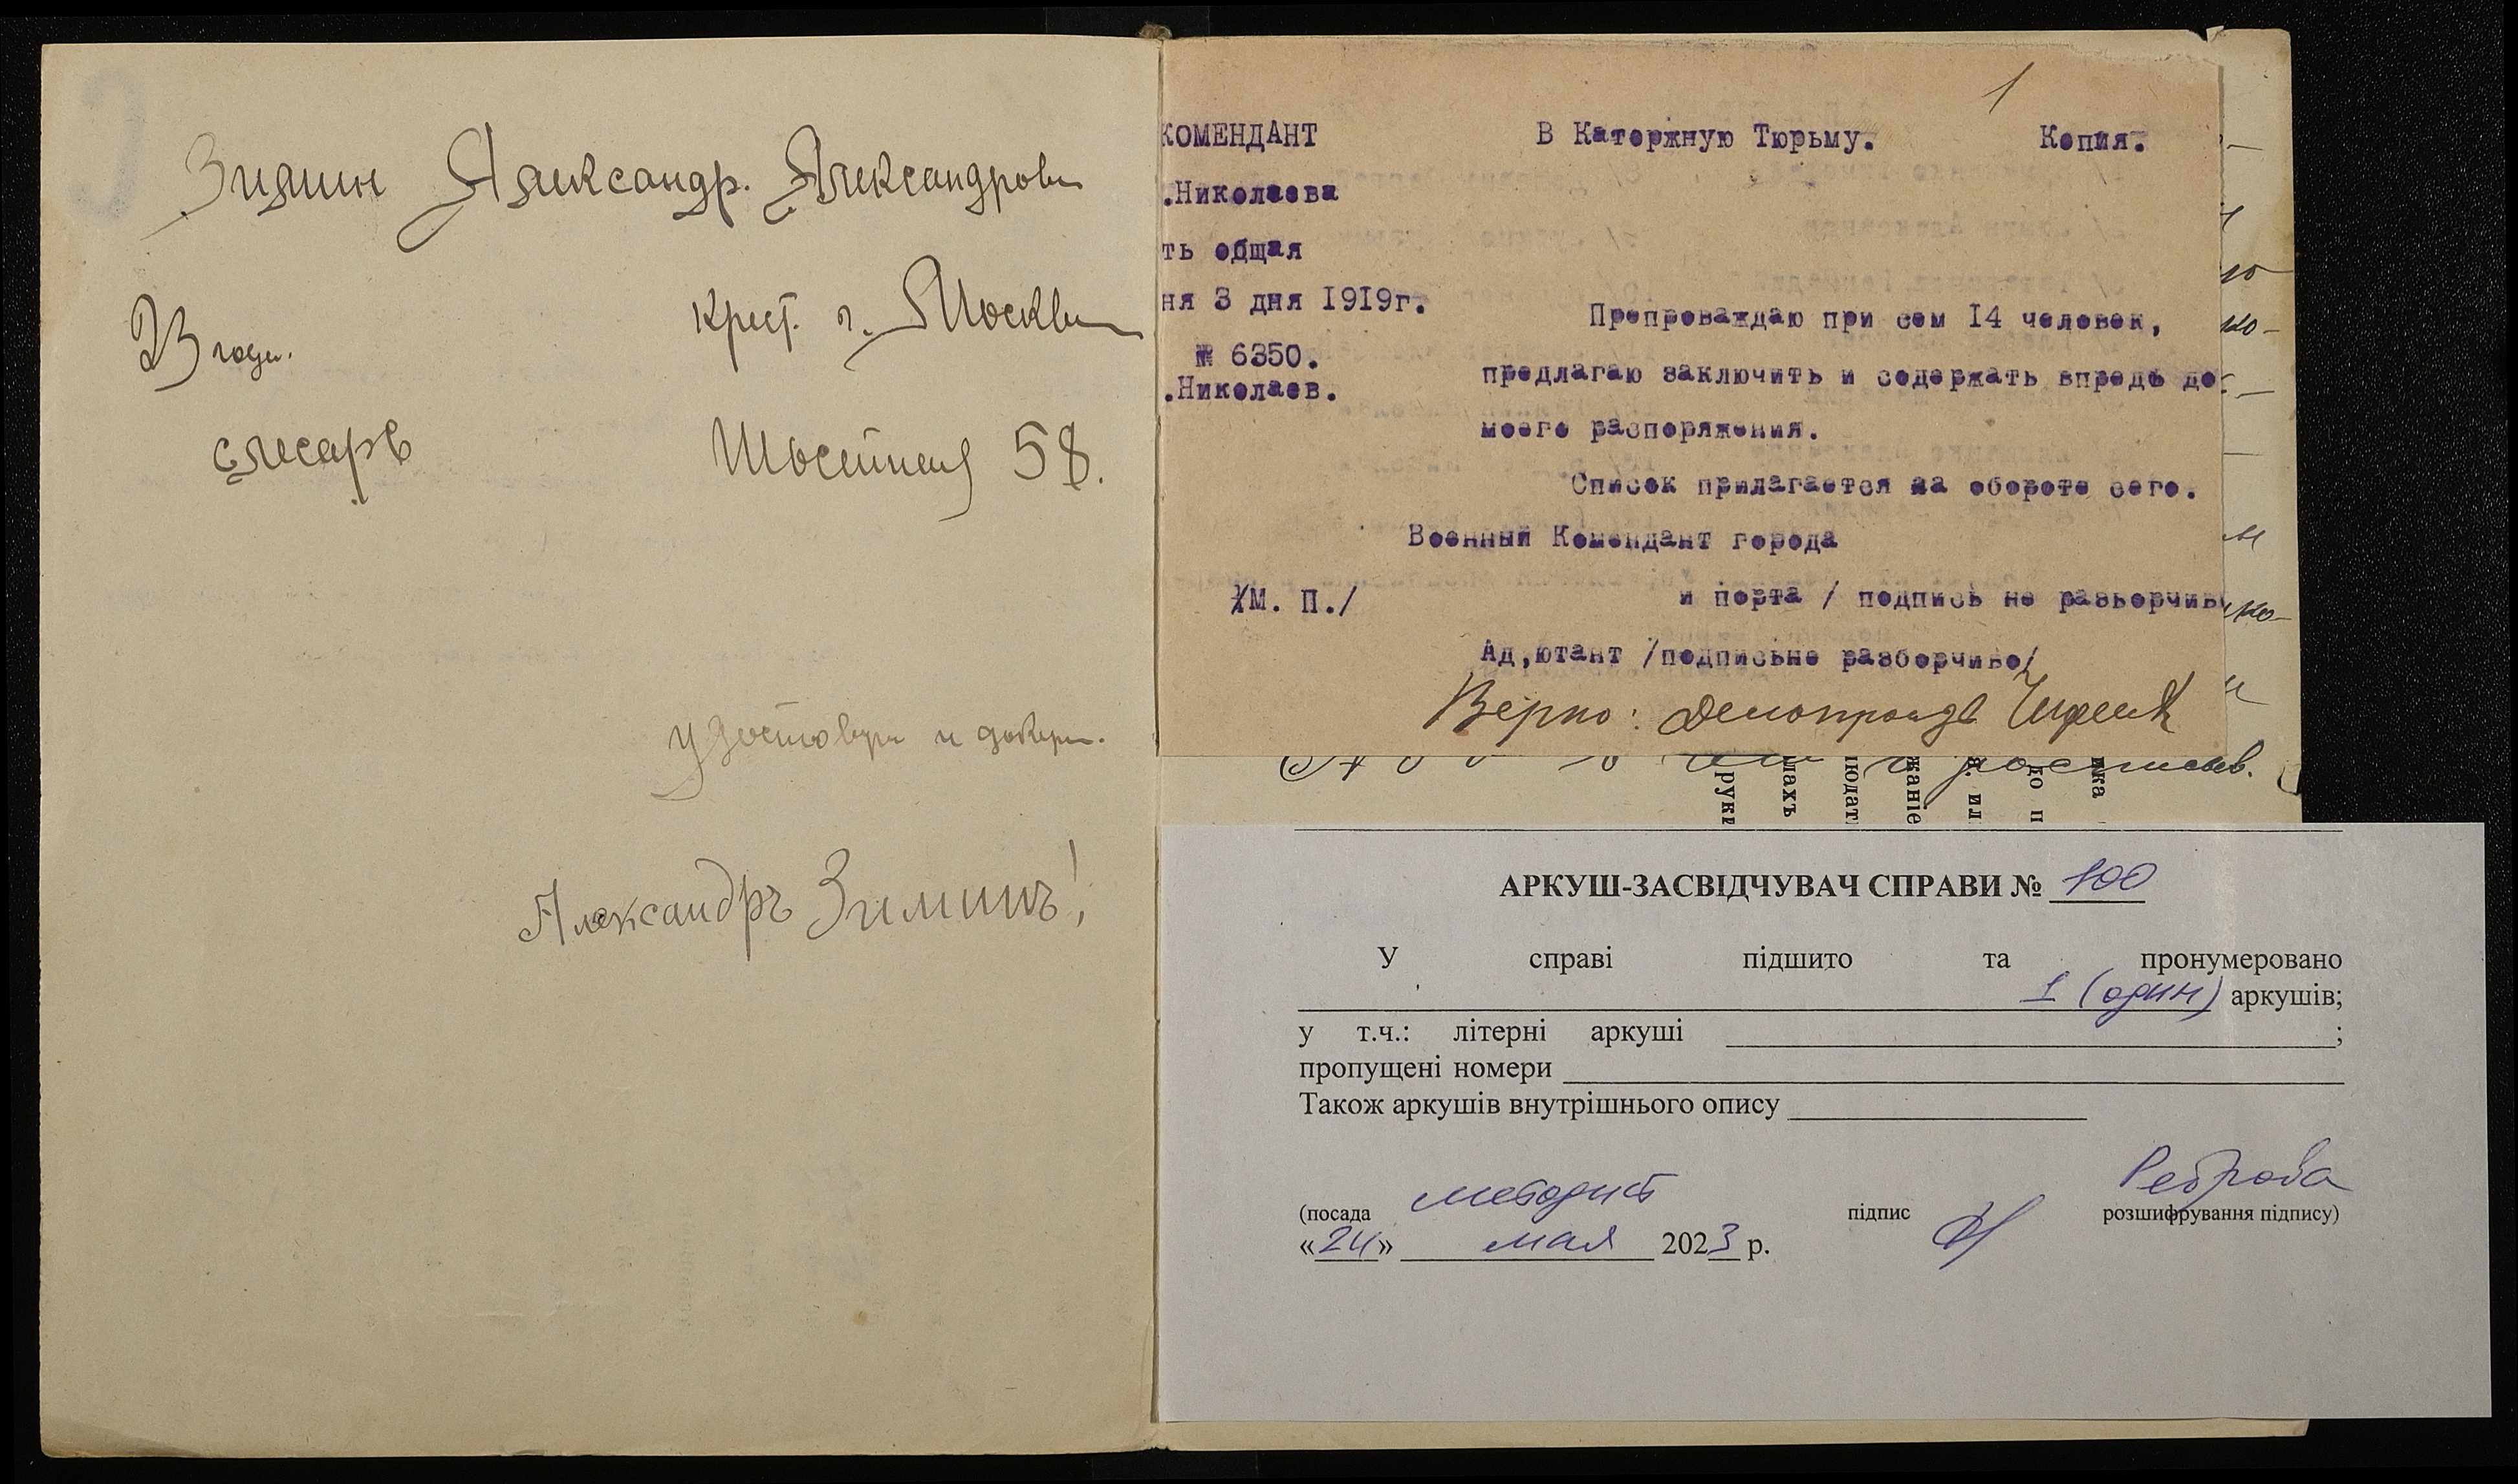 Зимин Александр. Александрови
23 года.
крест. г. Москвы
слесарь
58.
удостовер и довер.
Александръ Зиминъ!
1
КОМЕНДАНТ В Каторжную Тюрьму. Копия.
.Николаева
ть общая
ня 3 дня 1919г.
Препроваждаю при сем 14 человек,
№ 6350.
предлагаю заключить и содержать впредь до
.Николаев.
моего распоряжения.
Список прилагается на обороте сего.
Военный Комендант города
/М. П./ и порта / подпись не разборчив
Ад,ютант /подписьне разборчиво/
Верно: Делопроизв
руки
лахъ
юдат
жаніе
з. ил
до п
жка
АРКУШ-ЗАСВІДЧУВАЧ СПРАВИ № 100
У справі підшито та пронумеровано
1 (один) аркушів;
у т.ч.: літерні аркуші ;
пропущені номери
Також аркушів внутрішнього опису
(посада методист підпис Реброва розшифрування підпису)
«24» мая 2023 р.